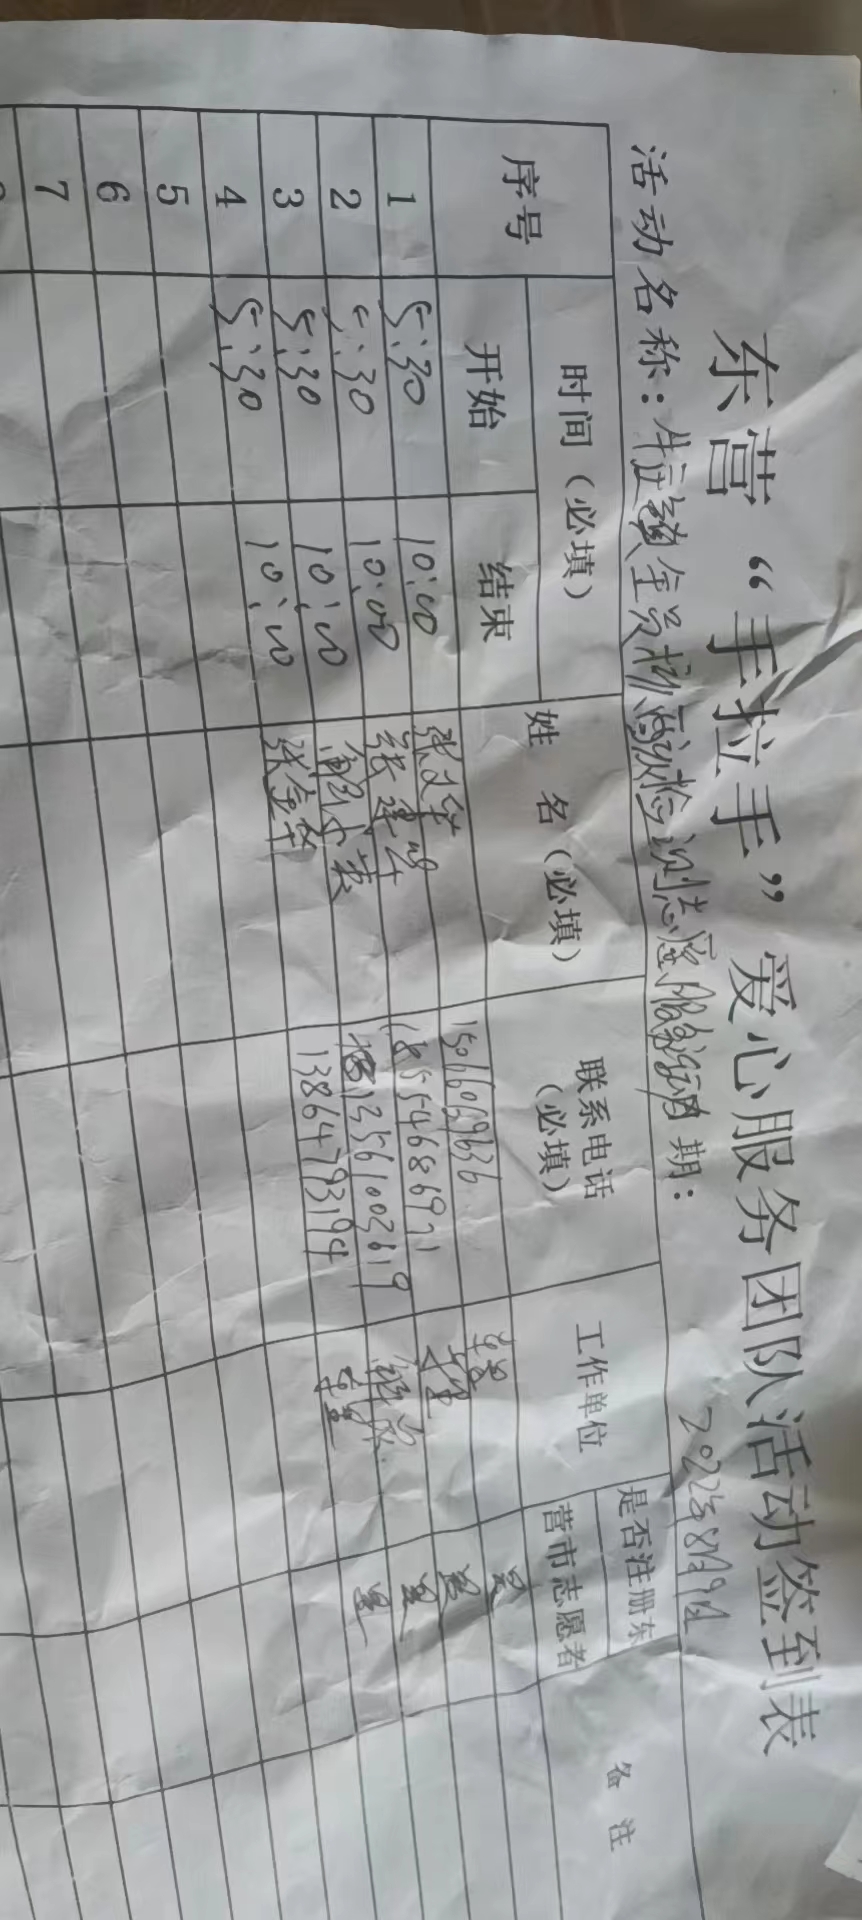 东营“手拉手”爱心服务团队活动签到表
活动名称：牛庄镇全员核酸检测志愿服务活动 日期：2022年8月9日
序号 时间（必填） 姓 名（必填） 联系电话（必填） 工作单位 是否注册东营市志愿者 备 注
开始 结束
1 5:30 10:00 张文华 15066069636 是
2 5:30 10:00 张建华 18554686971 是
3 5:30 10:00 是
4 5:30 10:00 张金华 13864793194 是
5
6
7